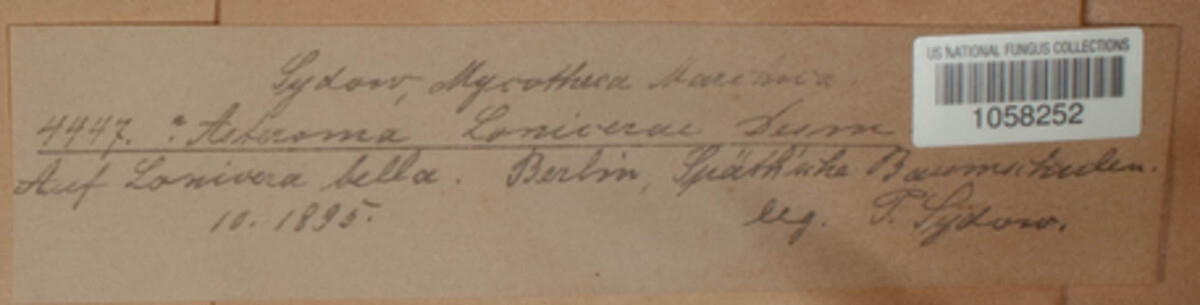 Sydow, Mycotheca Marchica
US NATIONAL FUNGUS COLLECTIONS
1058252
4447. Asteroma Lonicerae Desm
Auf Lonicera bella. Berlin, Späth'sche Baumschulen.
10. 1895. leg. P. Sydow.